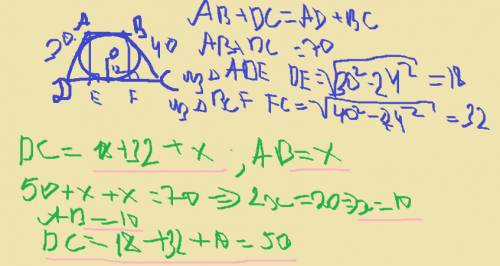 A B
30 40
O
12
D E F C
AB+DC=AD+BC
AB+DC=70
из△ADE DE=√30²-24²=18
из△BCF FC=√40²-24²=32
DC=18+32+x, AB=x
50+x+x=70⇒2x=20⇒x=10
AB=10
DC=18+32+10=50